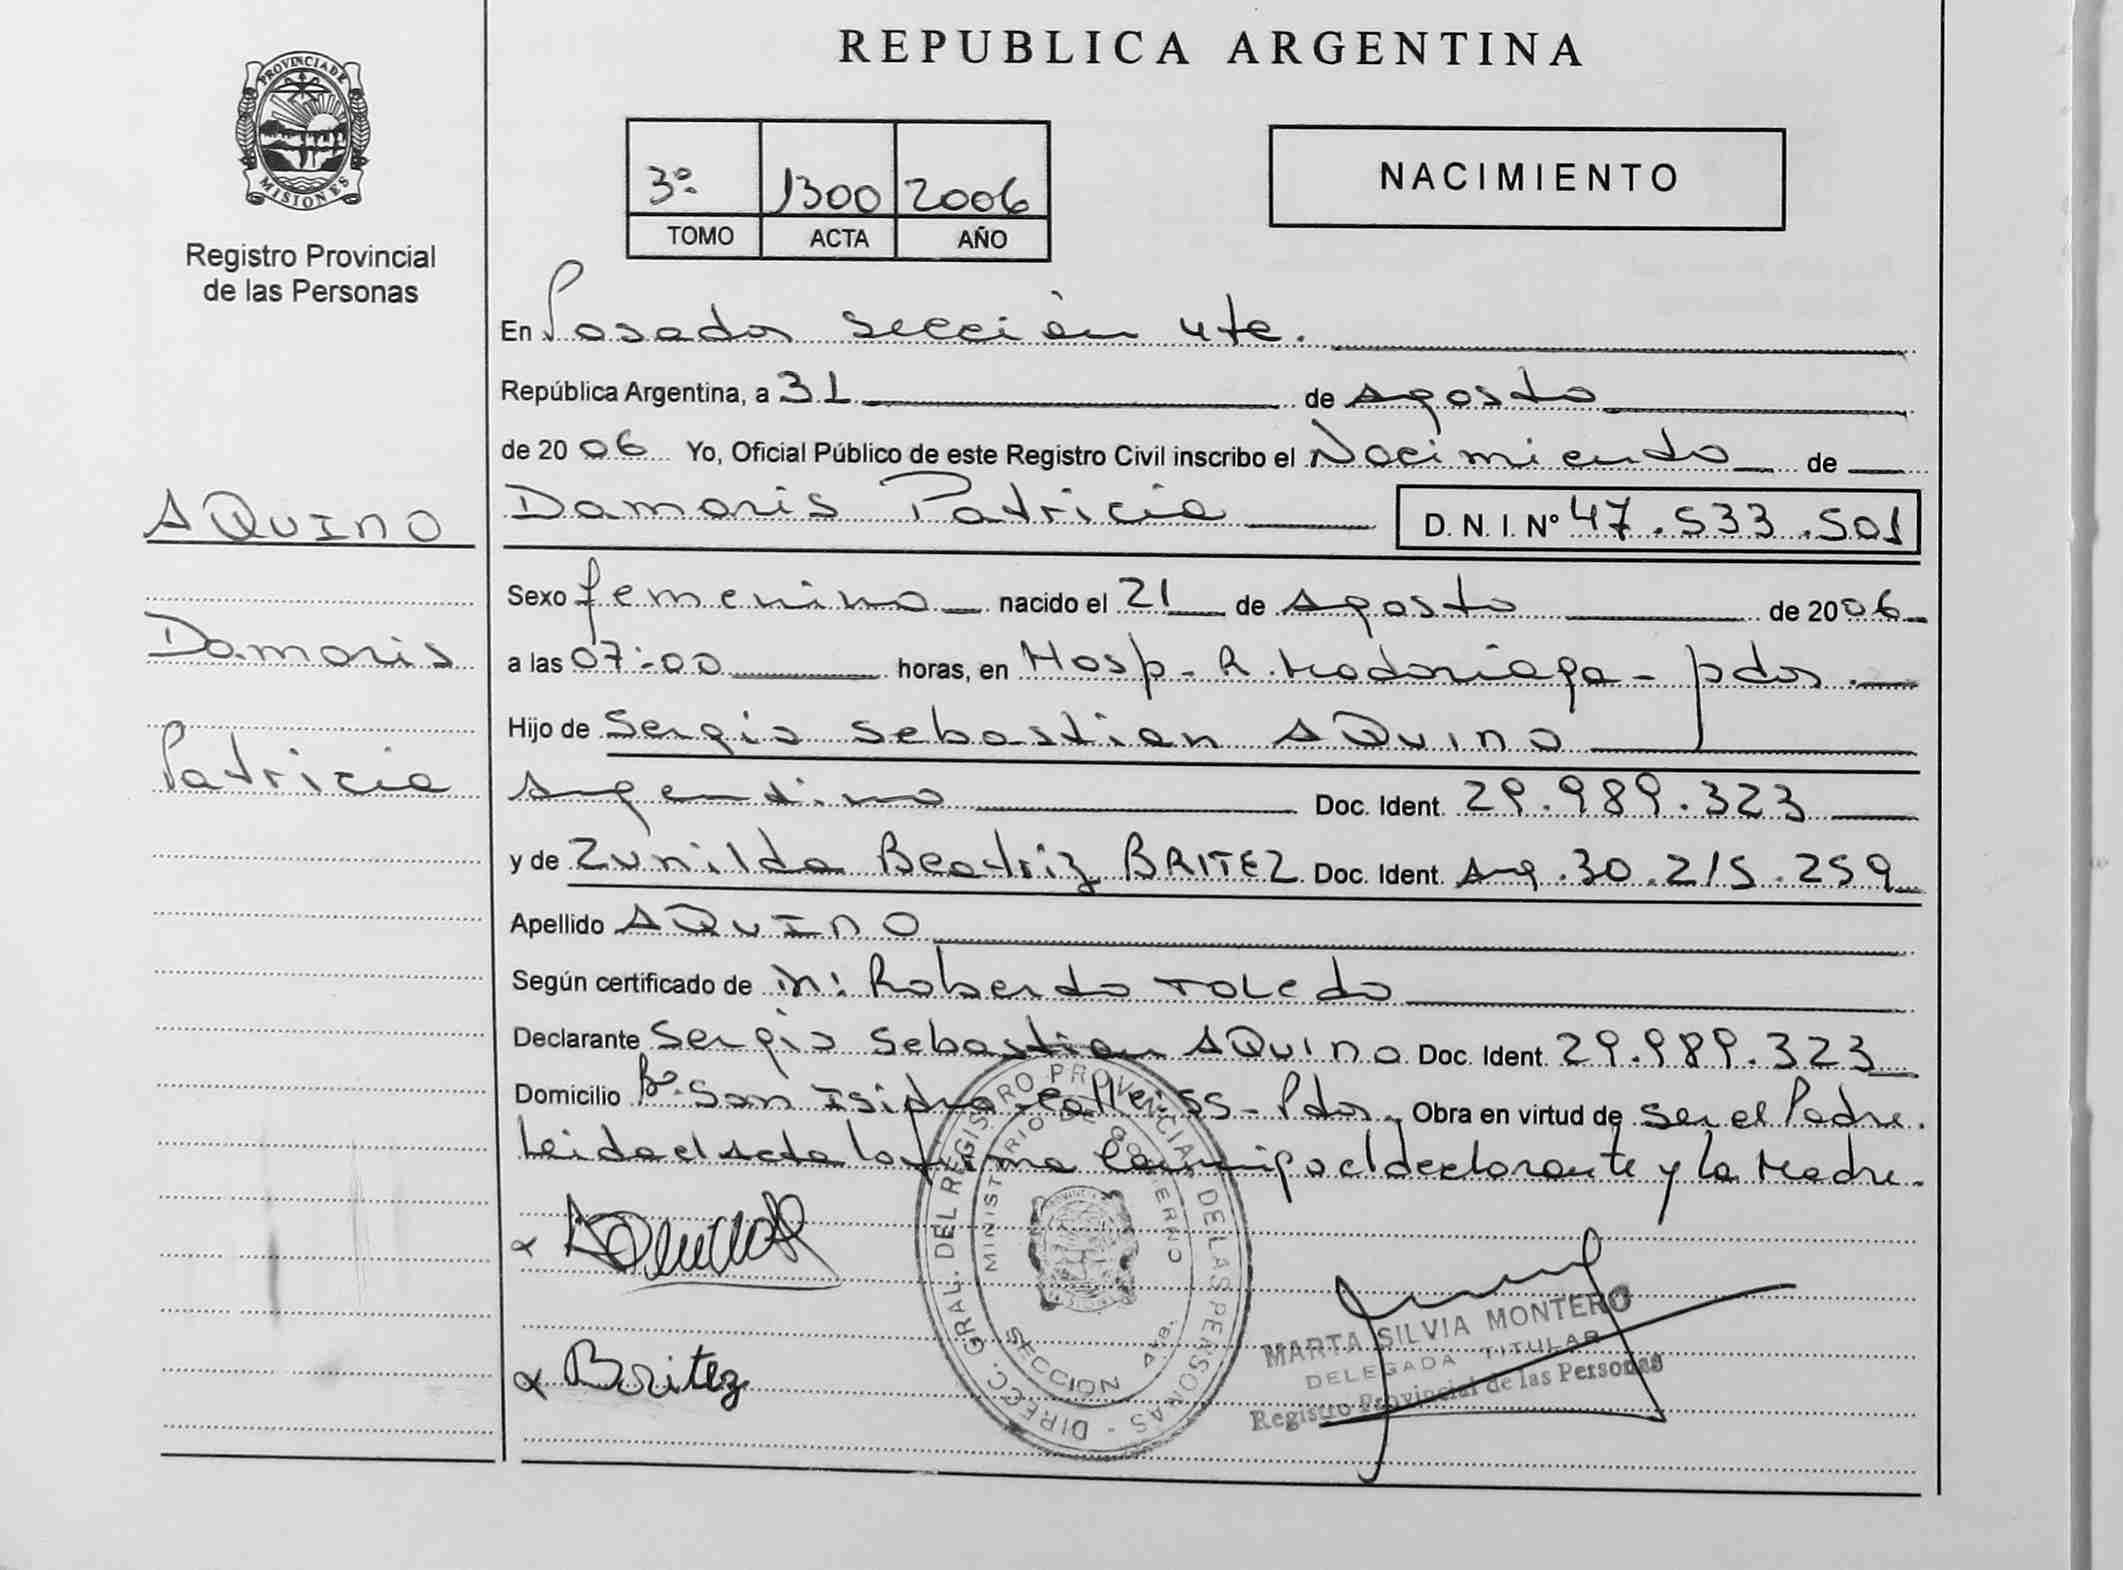 REPUBLICA ARGENTINA
PROVINCIA DE MISIONES
Registro Provincial
de las Personas
3º 1300 2006
TOMO ACTA AÑO
NACIMIENTO
En Posadas sección 4te.
República Argentina, a 31 de Agosto
de 2006 Yo, Oficial Público de este Registro Civil inscribo el Nacimiento de
AQUINO
Damaris
Patricia
Damaris Patricia D. N. I. Nº 47.533.501
Sexo femenino nacido el 21 de Agosto de 2006
a las 07:00 horas, en Hosp. R. Madariaga - pdas.
Hijo de Sergio Sebastian AQuino
Argentino Doc. Ident. 29.989.323
y de Zunilda Beatriz BRITEZ Doc. Ident. Arg. 30.215.259
Apellido AQUINO
Según certificado de m: Roberto Toledo
Declarante Sergio Sebastian AQuino Doc. Ident. 29.989.323
Domicilio Bº. San Isidro - Calle: SS - Pdas. Obra en virtud de ser el Padre.
Leida el Acta la firma Conmigo el declarante y la Madre.
Britez
DIRECC. GRAL. DEL REGISTRO PROVINCIAL DE LAS PERSONAS
MINISTERIO DE GOBIERNO
SECCION 4ta.
MARTA SILVIA MONTERO
DELEGADA TITULAR
Registro Provincial de las Personas